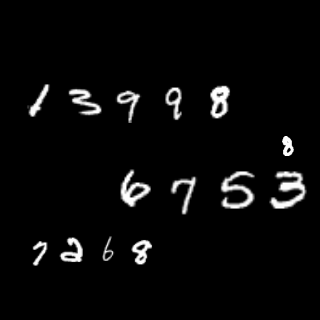 13998
8
6753
7268